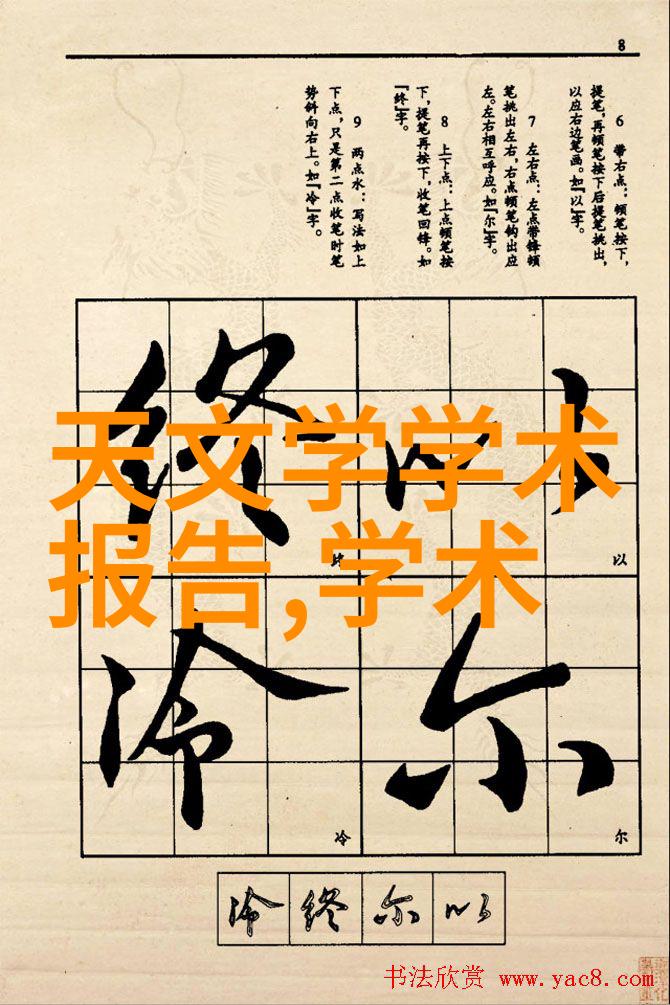 8
6 带右点：顿笔按下，
提笔，再顿笔按下后提笔挑出，
以应右边笔画。如『以』字。
7 左右点：左点带锋顿
笔挑出左右，右点顿笔钩出应
左。左右相互呼应。如『尔』字。
8 上下点：上点顿笔按
下，提笔再按下，收笔回锋。如
『终』字。
9 两点水：写法如上
下点，只是第二点收笔时笔
势斜向右上。如『冷』字。
终 以
天文学学术
报告,学术
终 以
冷 尔
冷 尔
冷 终 尔 以
书法欣赏 www.yac8.com